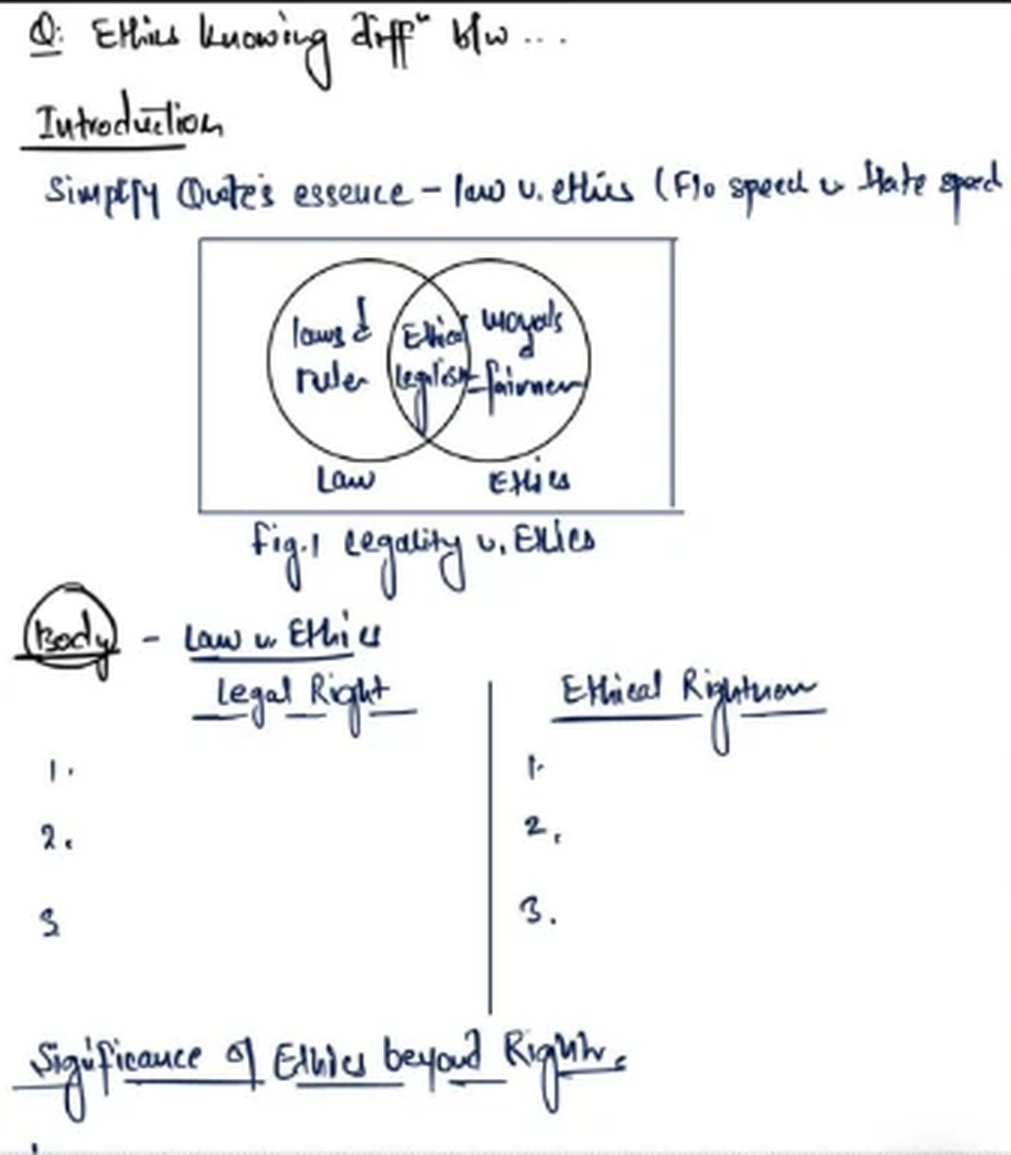 Q: Ethics knowing diffⁿ b/w ...
Introduction
Simplify Quote's essence - law v. ethics (F/o speech v Hate speech
laws &
rules
Ethical
legalism
morals
fairness
Law
Ethics
Fig.1 Legality v. Ethics
Body - Law v. Ethics
Legal Right
Ethical Rightness
1.
1.
2.
2.
3
3.
Significance of Ethics beyond Rights